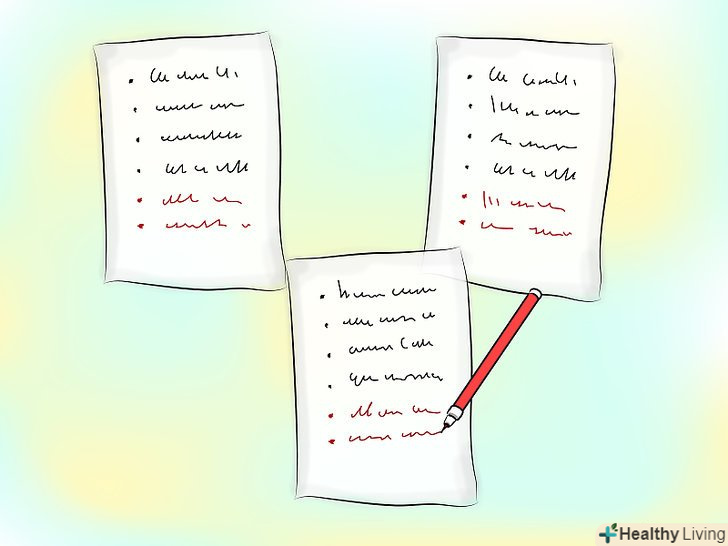 Healthy Living